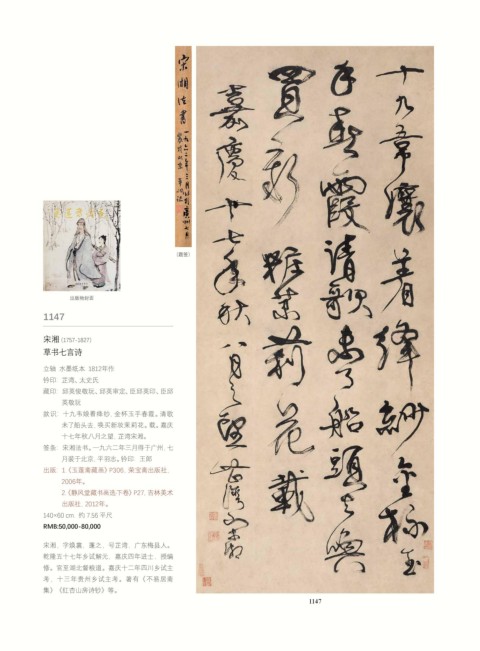 宋湘法書
一九六二年三月得於廣州七月
裝於北京
(题签)
十九韋孃着絳紗金杯玉
手春霞清歌未了船頭去喚
買新粧茉莉花載
嘉慶十七年秋八月之望芷灣宋湘
出版物封面
1147
宋湘 (1757-1827)
草书七言诗
立轴 水墨纸本 1812年作
钤印：芷湾、太史氏
款识：十九韦娘着绛纱，金杯玉手春霞。清歌
未了船头去，唤买新妆茉莉花。载。嘉庆
十七年秋八月之望，芷湾宋湘。
签条：宋湘法书。一九六二年三月得于广州，七
月装于北京，平羽志。钤印：王郎
出版：1.《玉莲斋藏画》P206，荣宝斋出版社，
2006年。
2.《静风堂藏书画选·下卷》P27，吉林美术
出版社，2012年。
140×60 cm 约 7.56 平尺
RMB:50,000-80,000
宋湘，字焕襄，蓬之，号芷湾，广东梅县人。
乾隆五十七年乡试解元，嘉庆四年进士，授编
修，官至湖北督粮道。嘉庆十二年四川乡试主
考，十三年贵州乡试主考。著有《不易居斋
集》《红杏山房诗钞》等。
1147